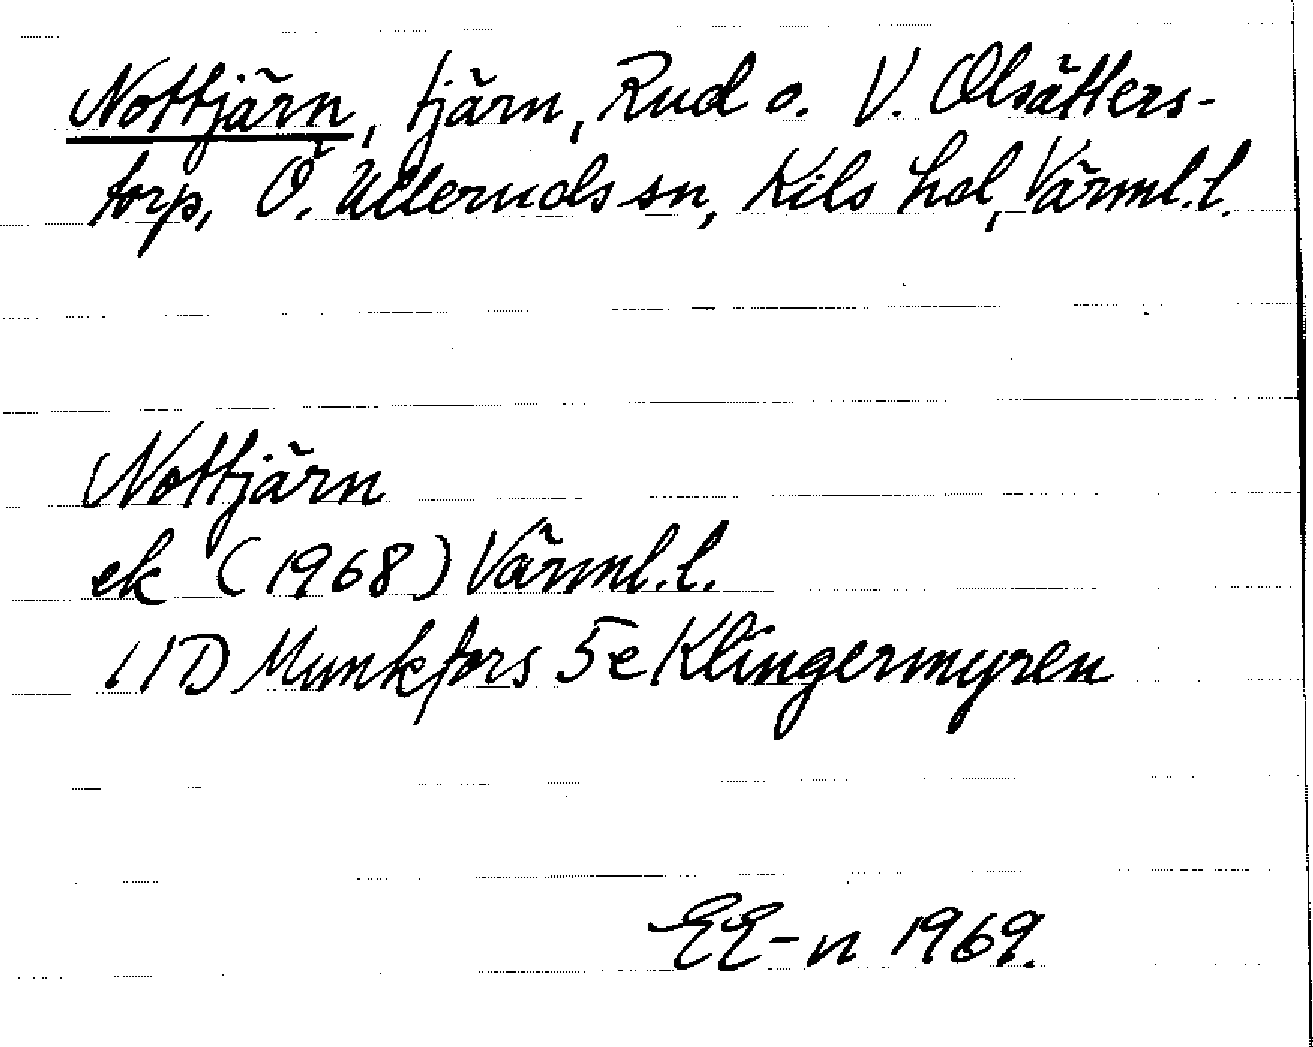 Nottjärn, tjärn, Rud o. V. Olsätters-
torp, Ö. Ulleruds sn, Kils hd, Värml.l.
Nottjärn
ek (1968) Värml.l.
11D Munkfors 5e Klingermyren
EE-n 1969.